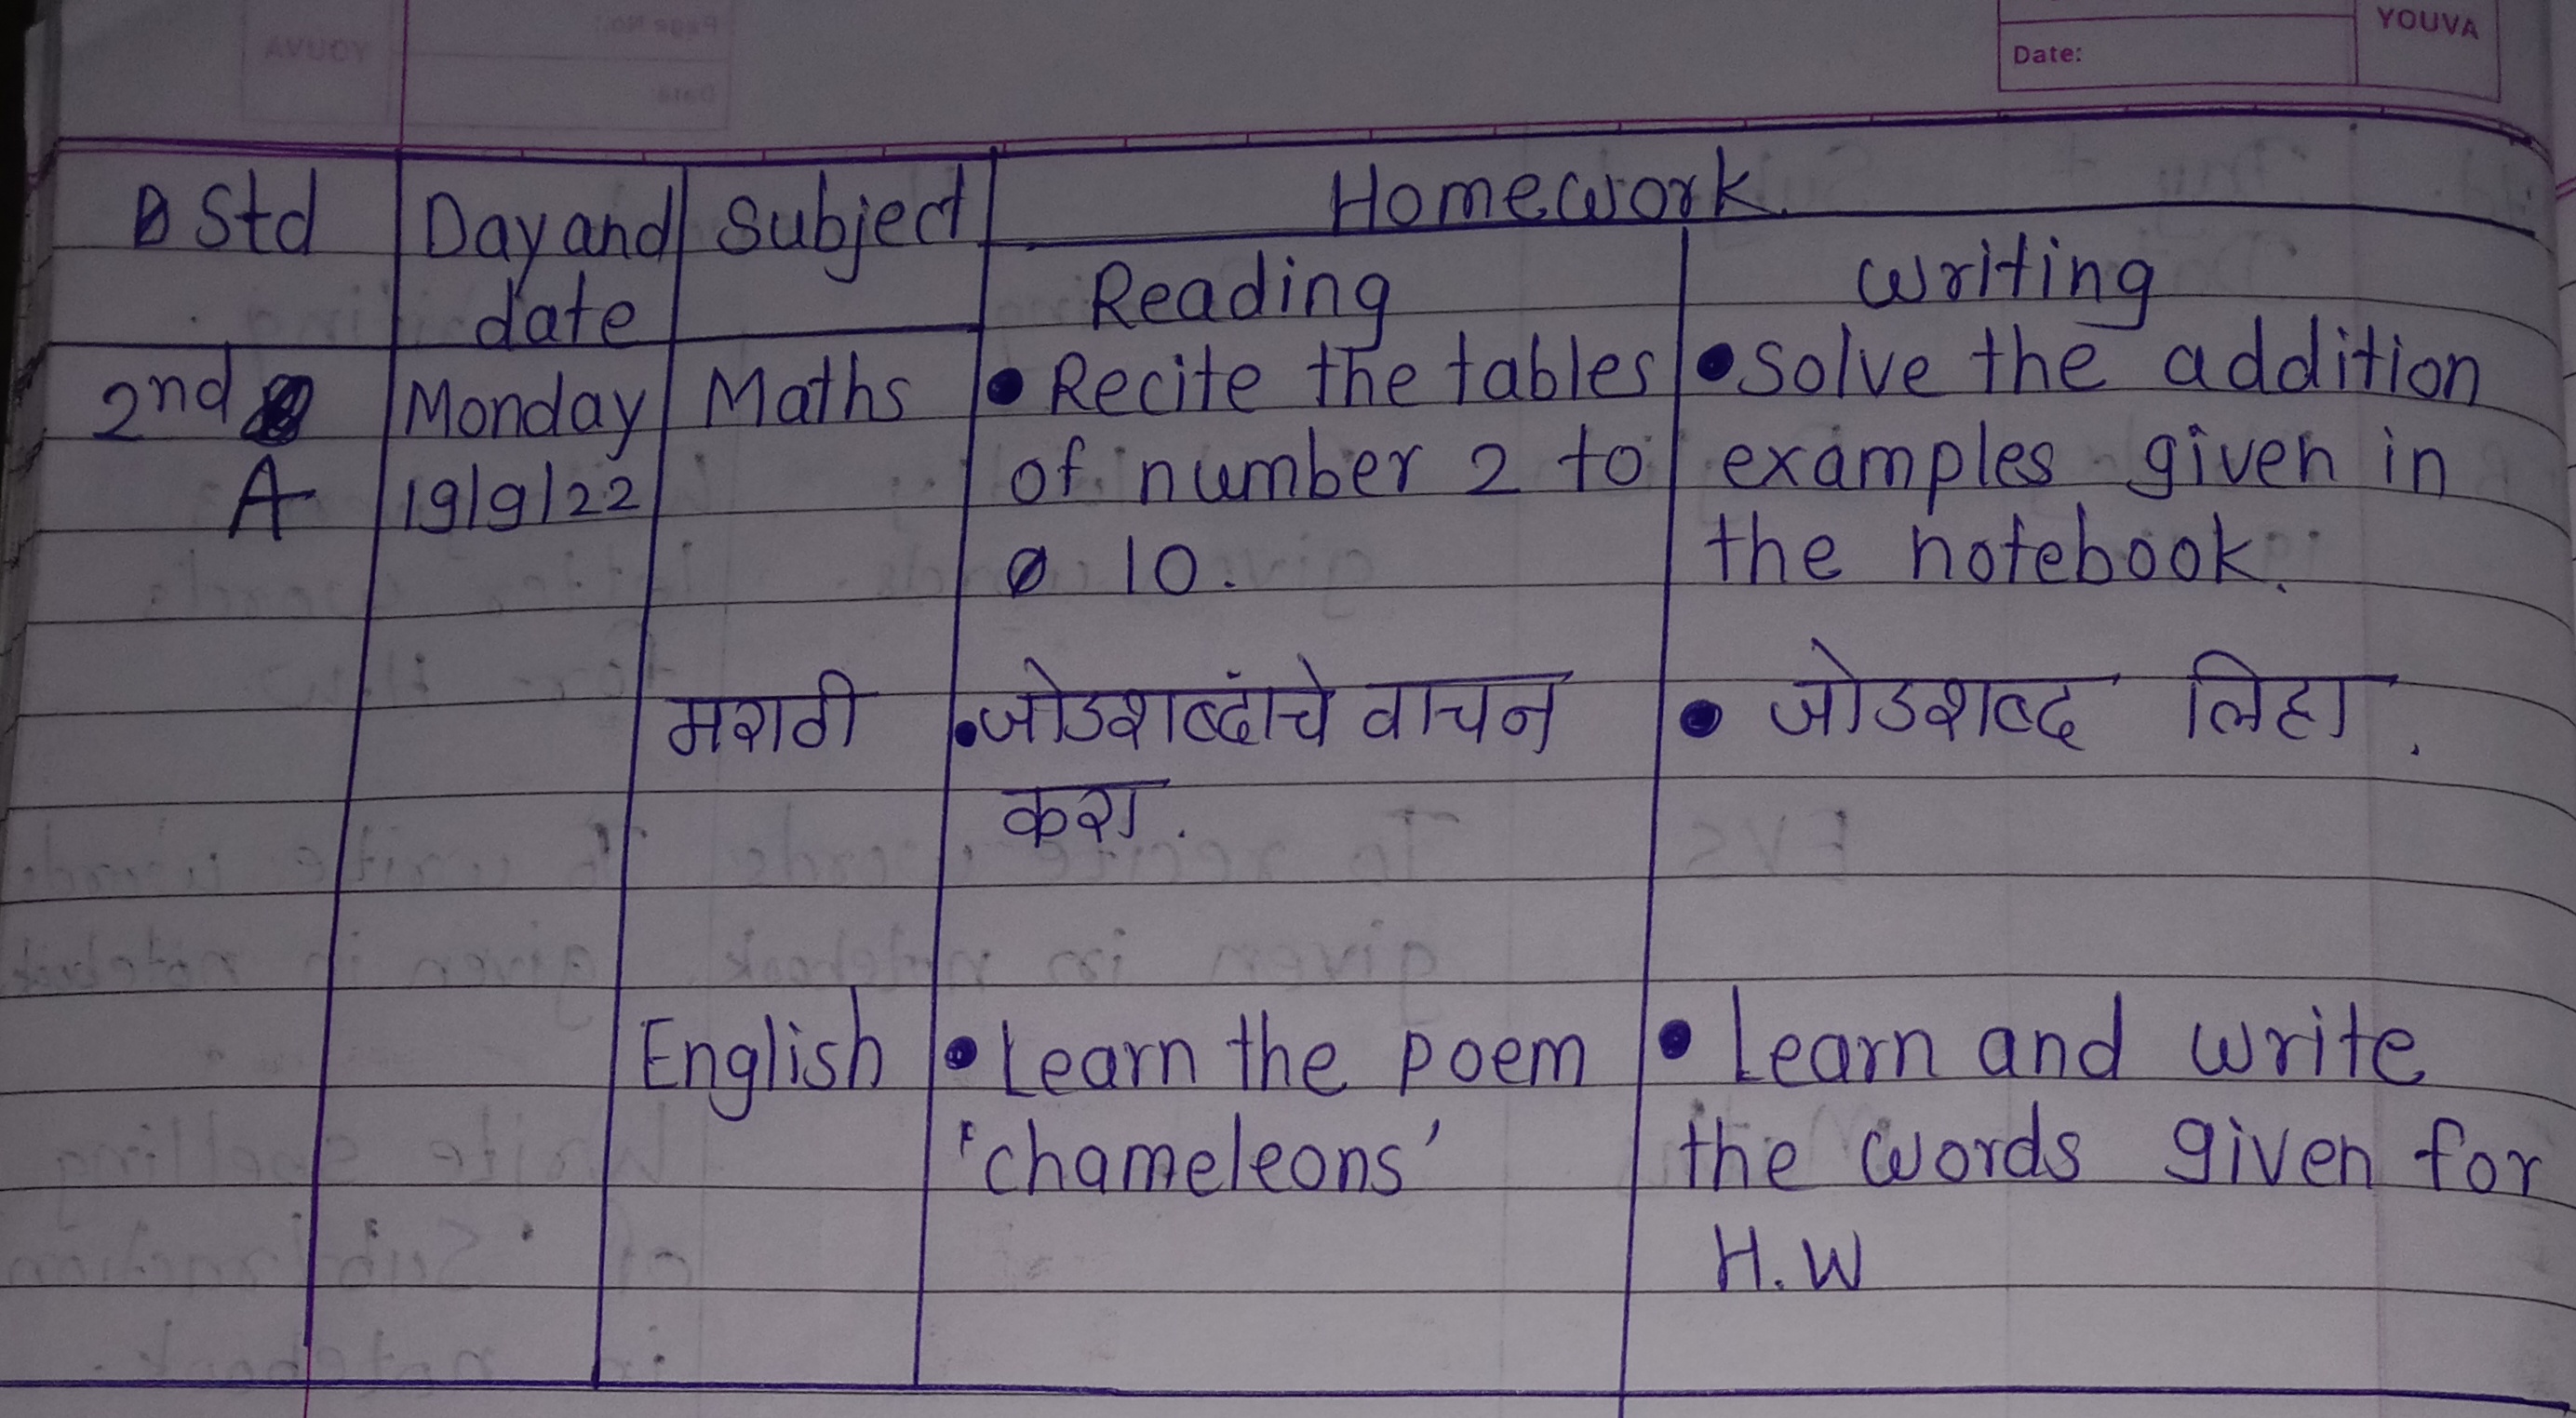 YOUVA
Date:
Std Day and date Subject Homework.
Reading Writing
2nd A Monday 19/9/22 Maths
• Recite the tables
of number 2 to
10.
• Solve the addition
examples given in
the notebook.
मराठी
• जोडशब्दांचे वाचन
करा.
• जोडशब्द लिहा.
English
• Learn the poem
'chameleons'
• Learn and write
the words given for
H.W